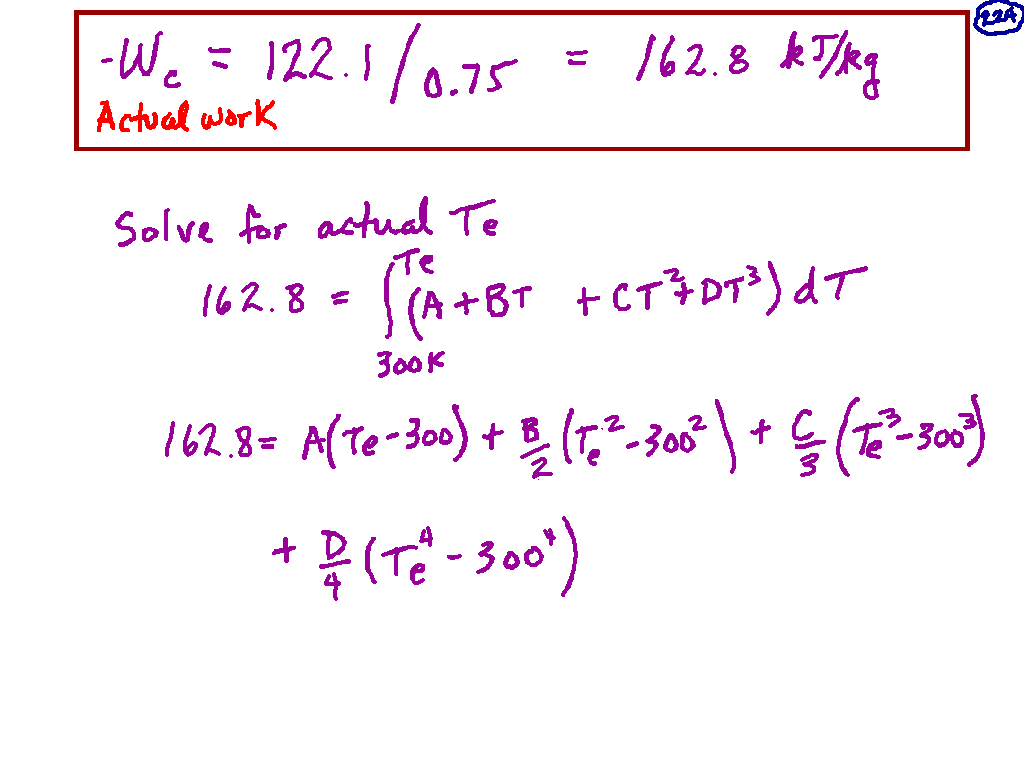 22A
-Wc = 122.1/0.75 = 162.8 kJ/kg
Actual work
Solve for actual Te
162.8 = ∫_{300K}^{Te} (A + BT + CT² + DT³) dT
162.8 = A(Te - 300) + B/2 (Te² - 300²) + C/3 (Te³ - 300³)
+ D/4 (Te⁴ - 300⁴)